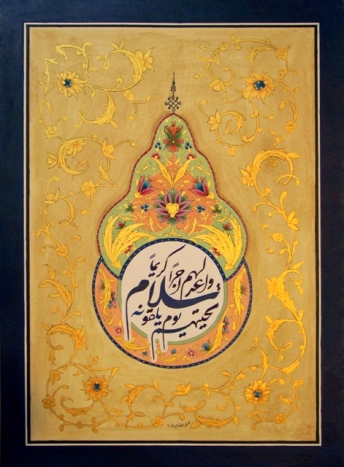 تحيتهم يوم يلقونه
سلام
واعد لهم اجرًا كريمًا